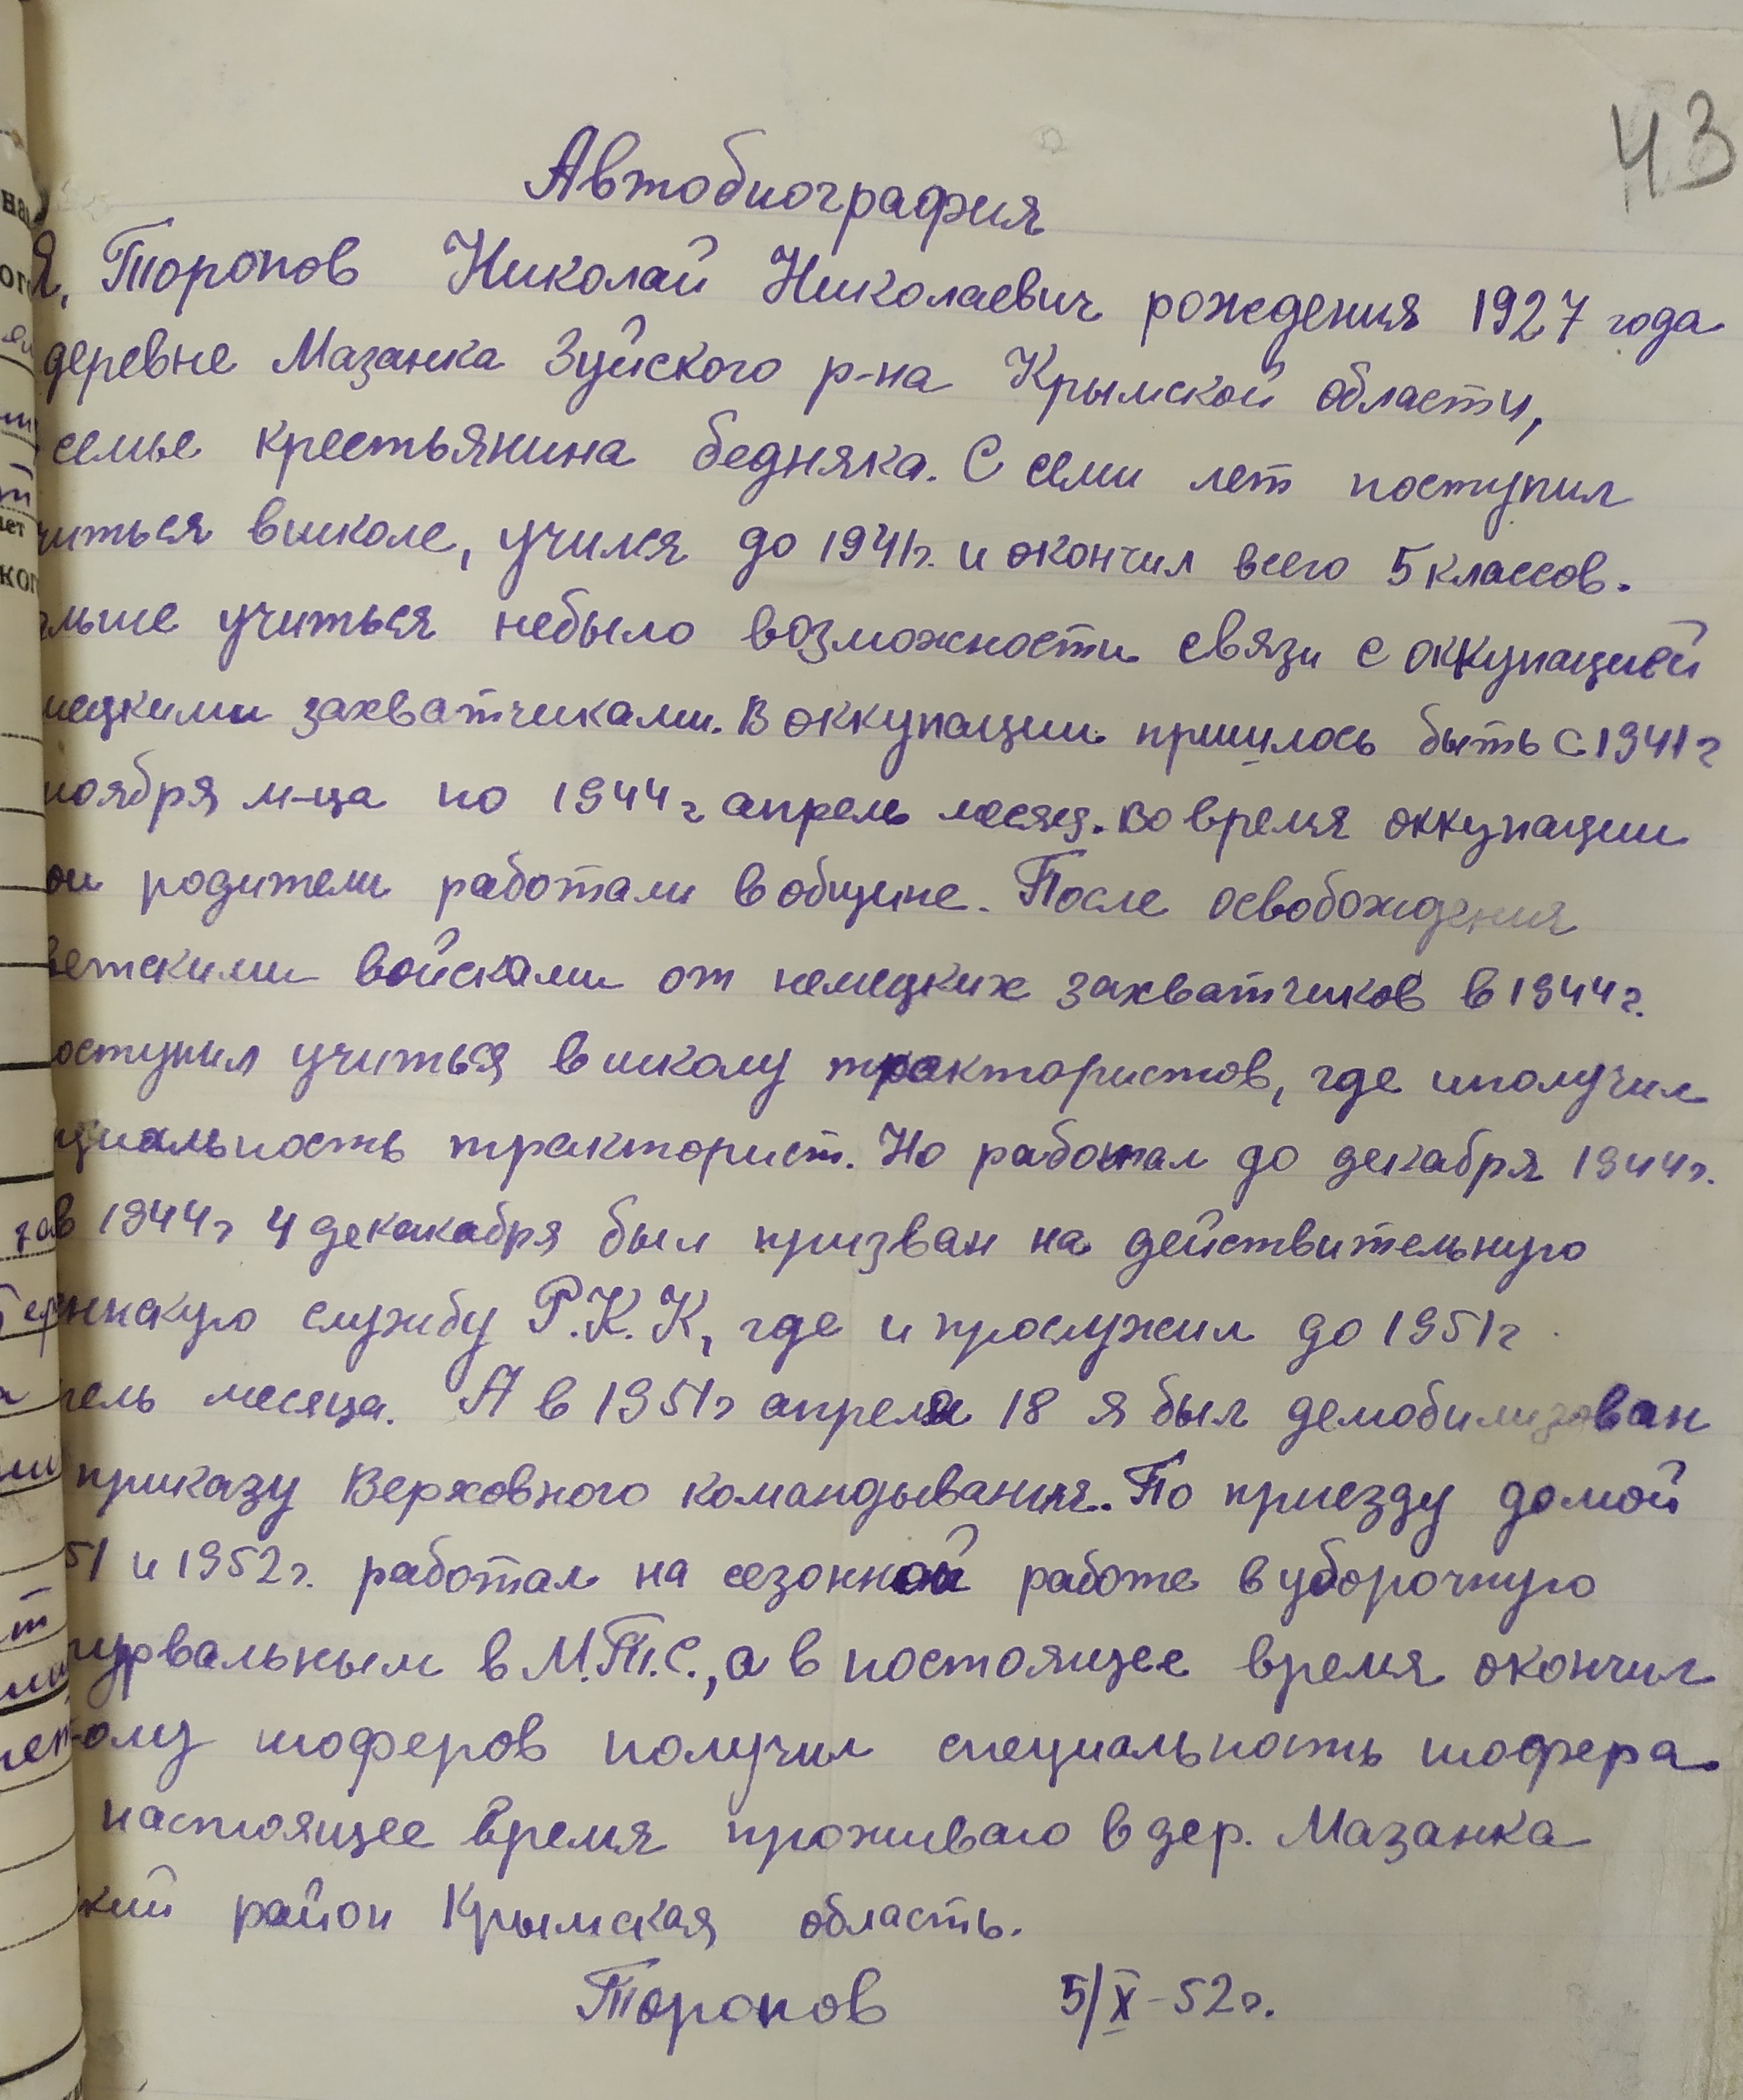 43
Автобиография
Я, Торопов Николай Николаевич рождения 1927 года
деревне Мазанка Зуйского р-на Крымской области,
семье крестьянина бедняка. С семи лет поступил
читься в школе, учился до 1941г. и окончил всего 5 классов.
льше учиться небыло возможности связи с оккупацией
мецкими захватчиками. В оккупации пришлось быть с 1941г
ноября м-ца по 1944г апрель месяц. Во время оккупации
ои родители работали в общине. После освобождения
ветскими войсками от немецких захватчиков в 1944г.
оступил учиться в школу трактористов, где иполучил
циальность тракторист. Но работал до декабря 1944г.
в 1944г 4 декакабря был призван на действительную
инскую службу Р.К.К, где и прослужил до 1951г
рель месяца. А в 1951г апреля 18 я был демобилизован
приказу Верховного командывания. По приезду домой
51 и 1952г. работал на сезонной работе в уборочную
турвальным в М.Т.С., а в ностоящее время окончил
олу шоферов получил специальность шофера.
настоящее время проживаю в дер. Мазанка
кий район Крымская область.
Торопов 5/X-52г.